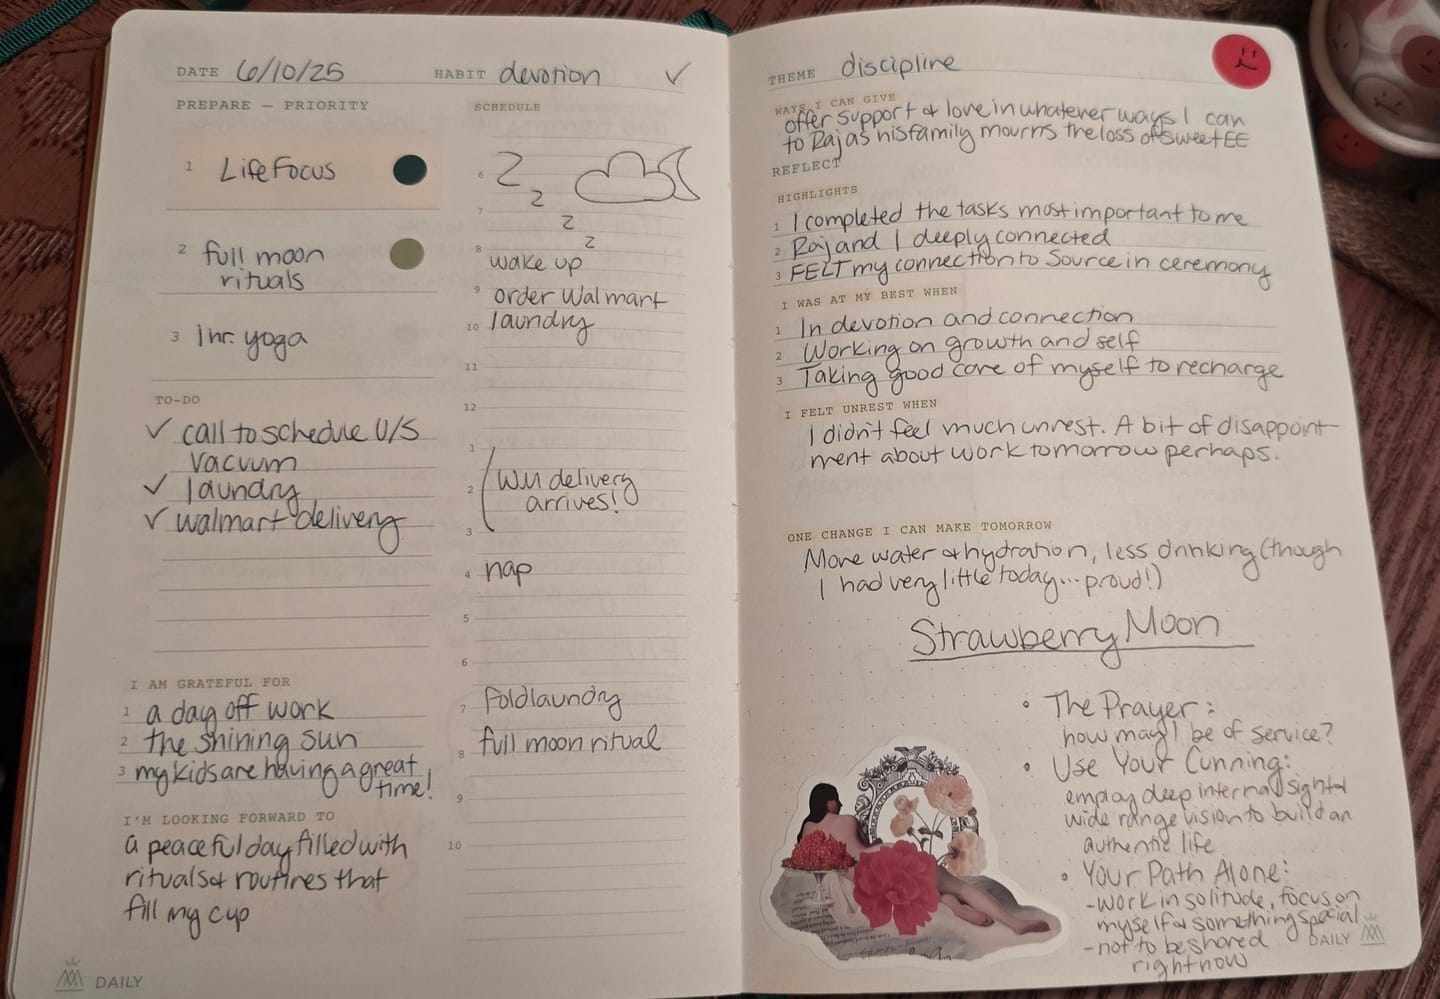 DATE 6/10/25 HABIT devotion ✓
PREPARE — PRIORITY
1 Life Focus
2 full moon
rituals
3 1 hr. yoga
TO-DO
✓ call to schedule U/S
vacuum
✓ laundry
✓ walmart delivery
I AM GRATEFUL FOR
1 a day off work
2 the shining sun
3 my kids are having a great
time!
I'M LOOKING FORWARD TO
a peaceful day filled with
rituals & routines that
fill my cup
DAILY
SCHEDULE
6 Z
z
7 z
z
8 wake up
9 order Walmart
10 laundry
11
12
1
2 WM delivery
arrives!
3
4 nap
5
6
7 Fold laundry
8 full moon ritual
9
10
THEME discipline
WAYS I CAN GIVE
offer support & love in whatever ways I can
to Raj as his family mourns the loss of sweet EE
REFLECT
HIGHLIGHTS
1 I completed the tasks most important to me
2 Raj and I deeply connected
3 FELT my connection to Source in ceremony
I WAS AT MY BEST WHEN
1 In devotion and connection
2 Working on growth and self
3 Taking good care of myself to recharge
I FELT UNREST WHEN
I didn't feel much unrest. A bit of disappoint-
ment about work tomorrow perhaps.
ONE CHANGE I CAN MAKE TOMORROW
More water & hydration, less drinking (though
I had very little today... proud!)
Strawberry Moon
• The Prayer:
how may I be of service?
• Use Your Cunning:
employ deep internal sight &
wide range vision to build an
authentic life
• Your Path Alone:
- work in solitude, focus on
myself & something special
- not to be shared
right now
DAILY